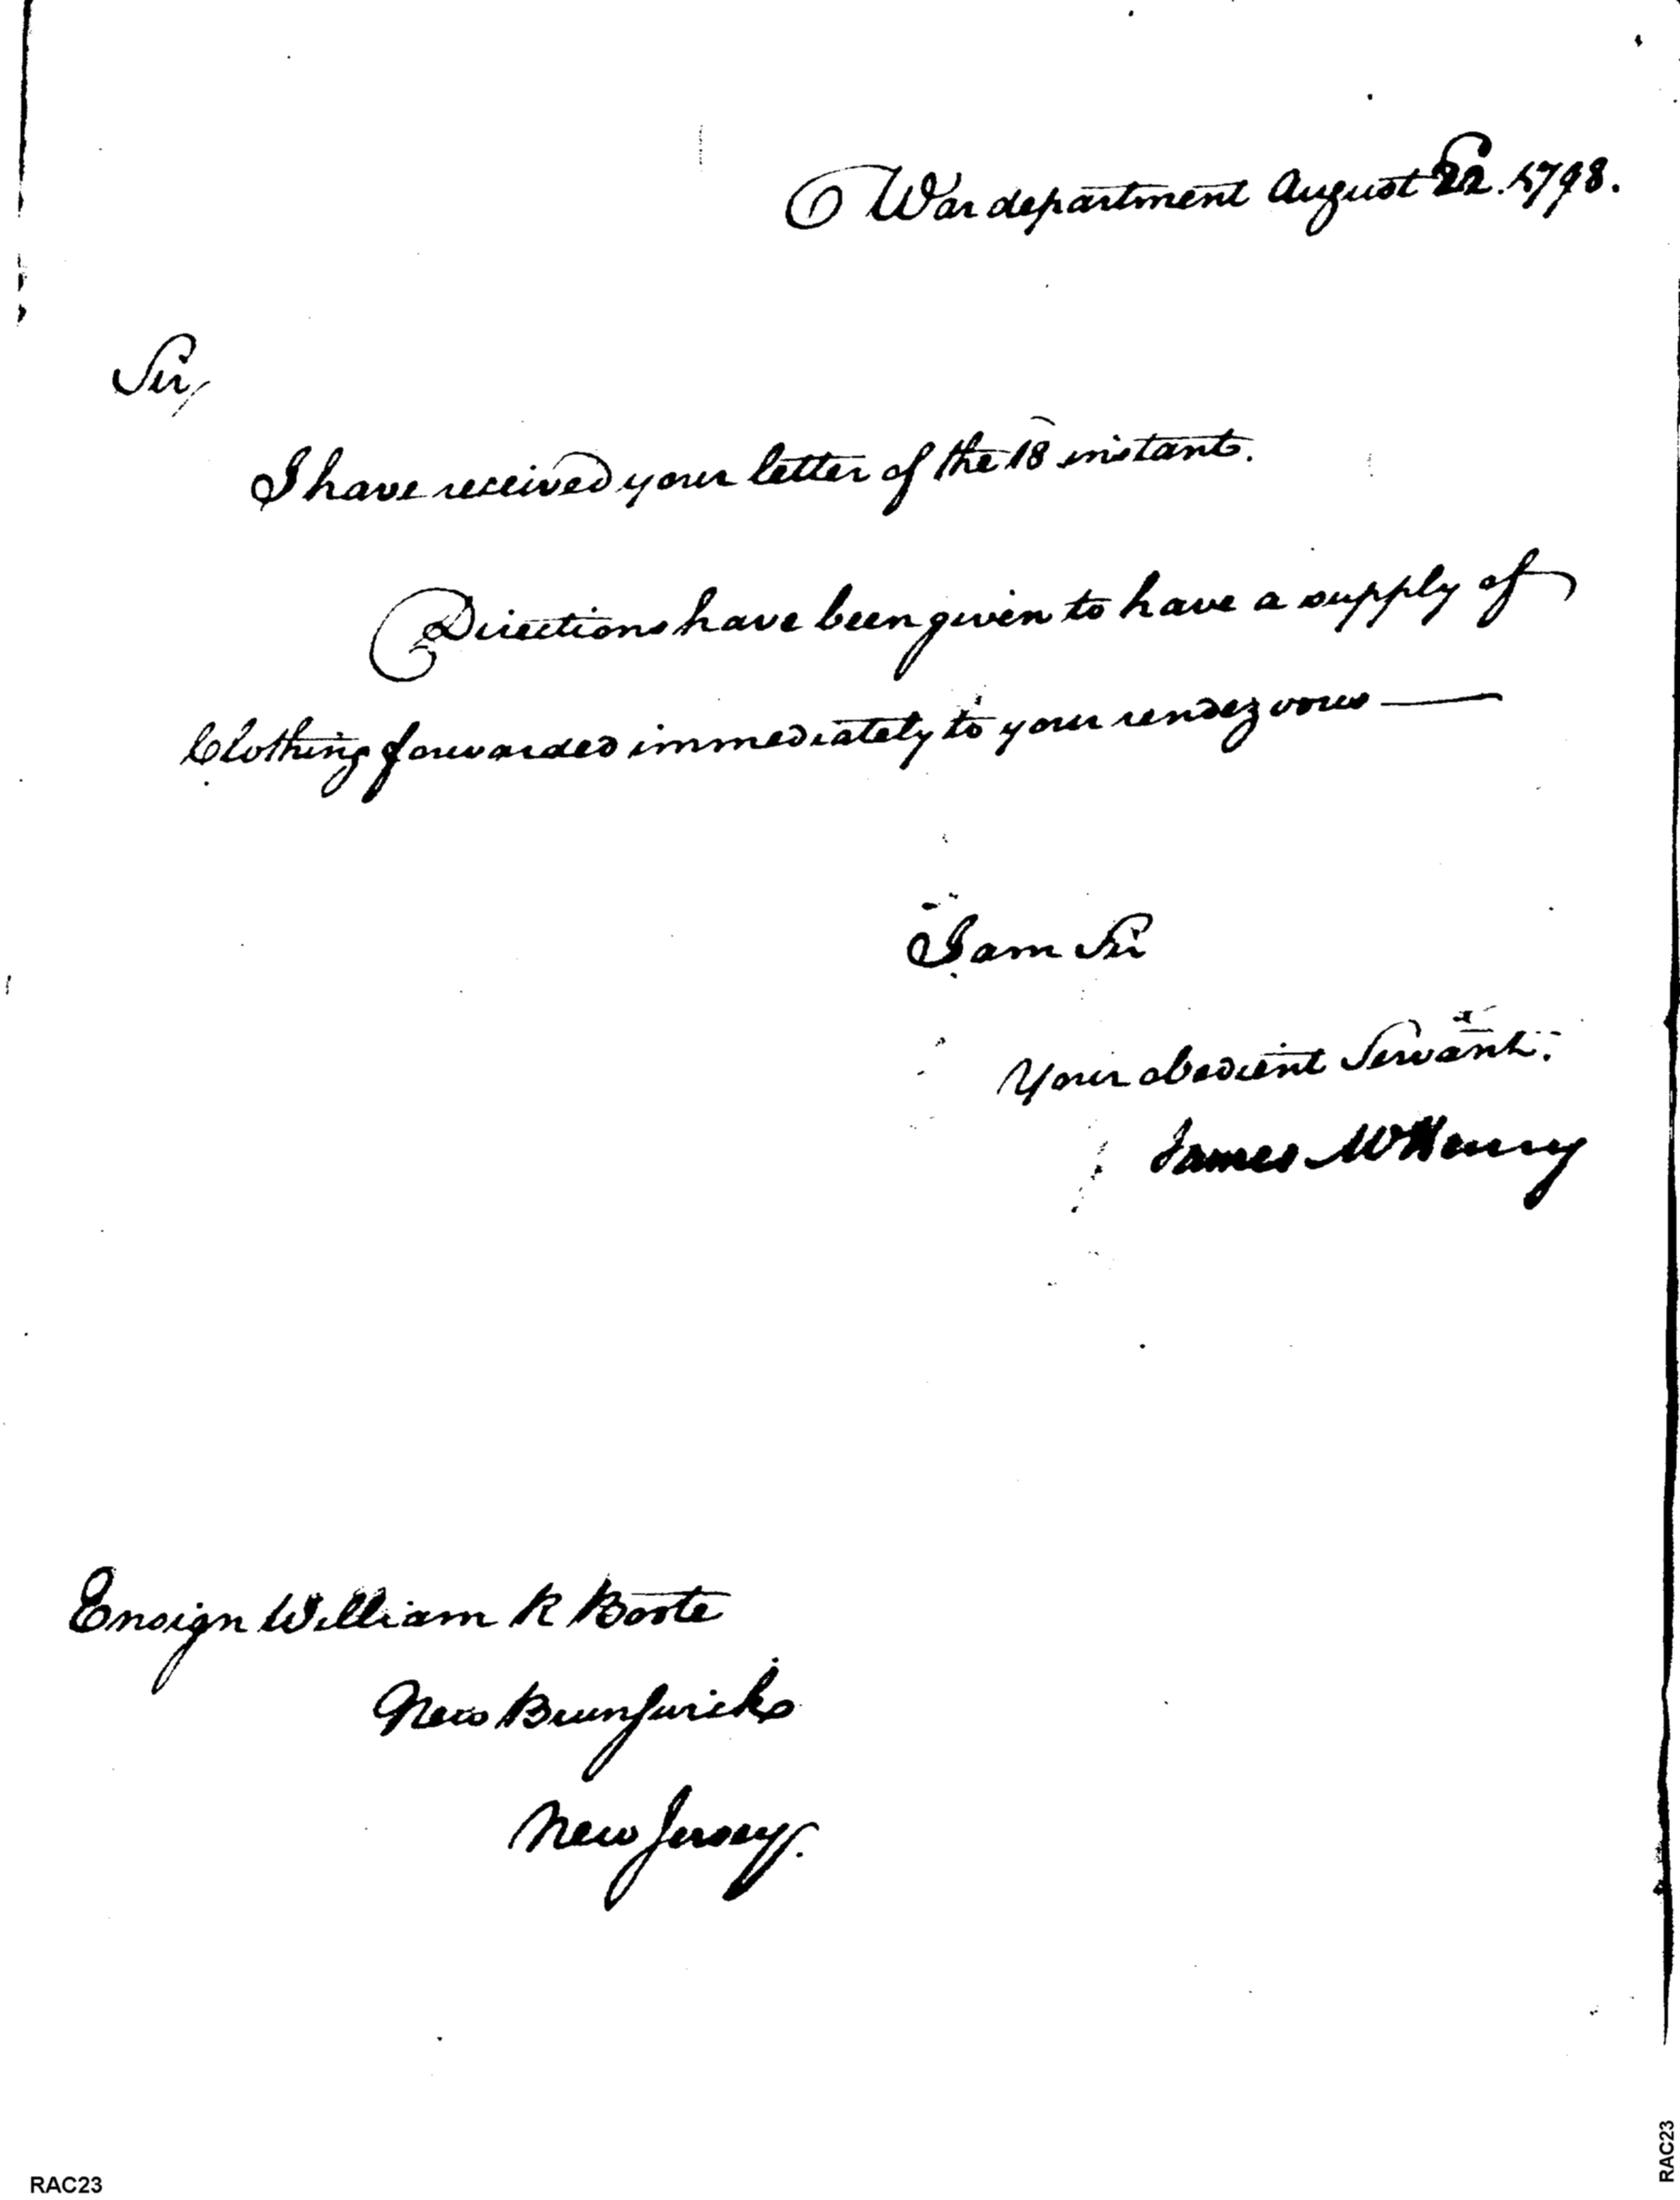 War department August 22. 1798.
Sir,
I have received your letter of the 18 instant.
Directions have been given to have a supply of
Clothing forwarded immediately to your rendezvous —
I am Sir
Your obedient Servant.
James McHenry
Ensign William R Boote
New Brunswick
New Jersey.
RAC23
RAC23